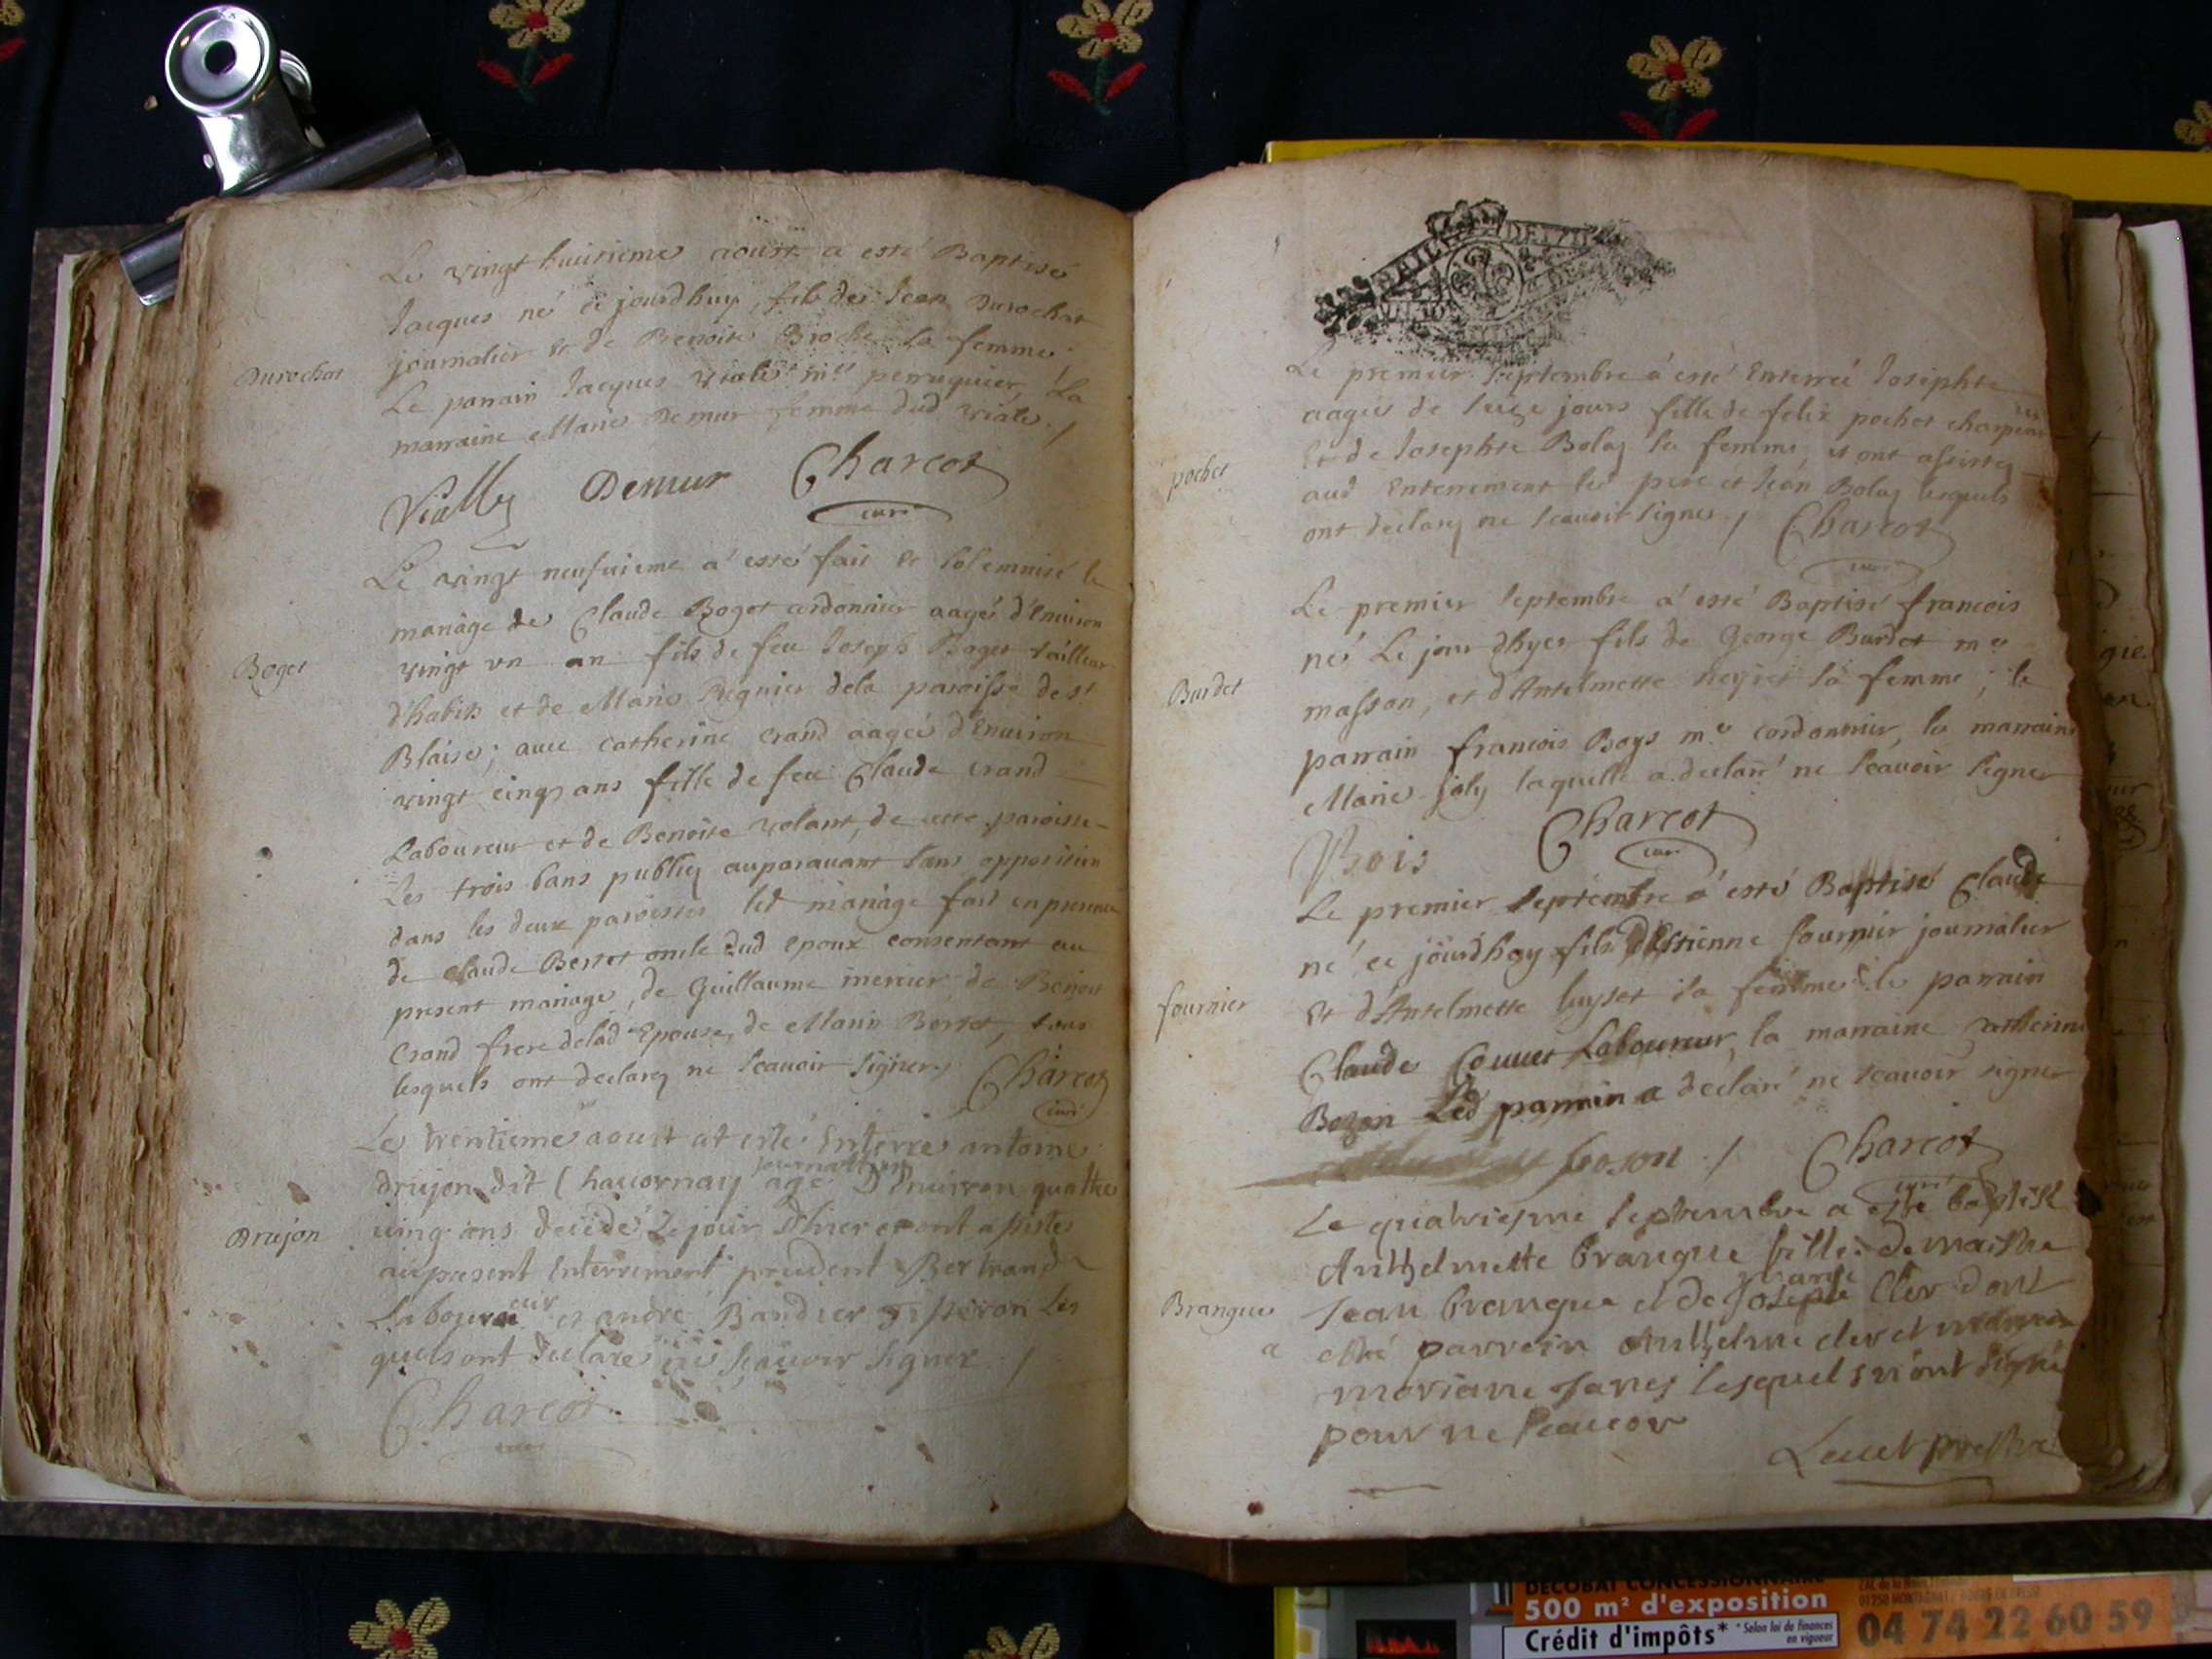 Le vingt huitieme aoust a esté Baptisé
Jacques né ce jourdhuy, fils de Jean Durochat
journalier et de Benoite Broche sa femme;
Durochat
Le parrain Jacques Viale mre perruquier, La
marraine Marie Demur femme dud Viale /
Vially Demur Charcot
curé
Le vingt neufvieme a esté fait et solemnisé le
mariage de Claude Boget cordonnier aagé d'Environ
Boget
vingt un an fils de feu Joseph Boget tailleur
d'habits et de Marie Regnier dela paroisse de st
Blaise; avec Catherine Crand aagée d'Environ
vingt cinq ans fille de feu Claude Crand
Laboureur et de Benoite Volant, de cette paroisse
Les trois bans publiez auparavant sans opposition
dans les deux paroisses led mariage fait en presence
de Claude Bertet oncle dud epoux consentant au
present mariage, de Guillaume mercier, de Benoit
Crand frere delad Epouse, de Marin Bertet, tous
lesquels ont declarez ne scavoir signer, Charcot
curé
Le trentieme aoust at esté Enterre antoine
journallier
drujon dit Chavornay agé D'Environ quattre
Drujon
vingt ans decidé Le jour D'hier et ont assistes
au present Enterrement prudent Bertrand
Laboureur et andré Bandier vigneron Les
quels ont declare ne sçavoir signer /
Charcot
curé
Le premier septembre a esté Enterreé Josephte
aagée de seize jours fille de felix pochet charpentier
pochet
Et de Josephte Bolaz sa femme, et ont assistez
aud Enterrement led pere et Jean Bolaz lesquels
ont declarez ne scavoir signer / Charcot
curé
Le premier septembre a esté Baptisé francois
né Le jour dhyer fils de George Burdet me
Burdet
masson, et d'Antelmette heyret sa femme; le
parrain francois Boys me cordonnier, la marraine
Marie Joly laquelle a declaré ne scavoir signer
Bois Charcot
curé
Le premier septembre a esté Baptisé Claude
né ce jourdhuy fils D'Estienne fournier journalier
fournier
Et d'Antelmette huyset sa femme le parrain
Claude Couvet Laboureur, la marraine antheline
Bozon Led parrain a declaré ne scavoir signer
boson / Charcot
curé
Le quatriesme septembre a esté baptisé
Anthelmette brangue fille de maistre
marie
Brangue
Jean brangue et de Joseph Cler dont
a esté parrein Anthelme cler et marreine
mariane Janes lesquels n'ont signé
pour ne scavoir
Levet prestre
DECOBAT CONCESSIONNAIRE
500 m² d'exposition
Crédit d'impôts* * Selon loi de finances
en vigueur
04 74 22 60 59